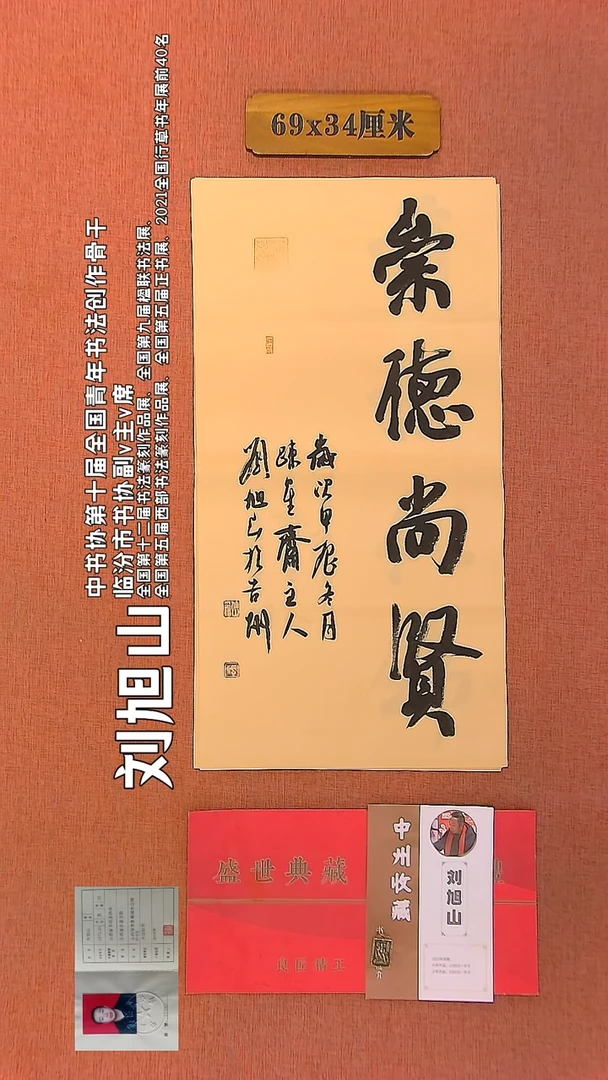 69x34厘米
崇德尚贤
岁次甲辰冬月
疎星齋主人
劉旭山於吉州
刘旭山
中书协第十届全国青年书法创作骨干
临汾市书协副v主v席
全国第十二届书法篆刻作品展、全国第九届楹联书法展、
全国第五届西部书法篆刻作品展、全国第五届正书展、2021全国行草书年展前40名
盛世典藏
中州收藏
刘旭山